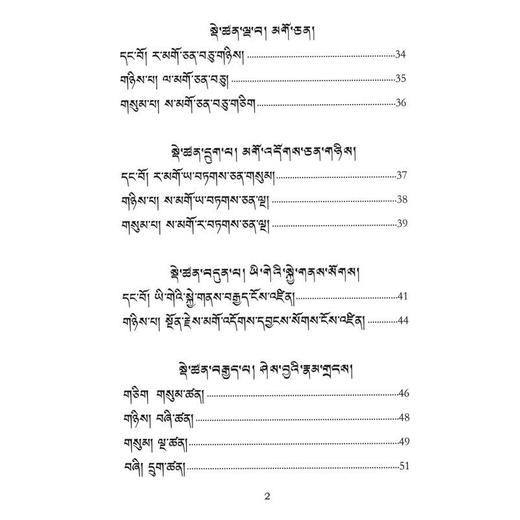 སྡེ་ཚན་ལྔ་བ། མགོ་ཅན།
དང་པོ། ར་མགོ་ཅན་བཅུ་གཉིས།........34
གཉིས་པ། ལ་མགོ་ཅན་བཅུ།........35
གསུམ་པ། ས་མགོ་ཅན་བཅུ་གཅིག........36
སྡེ་ཚན་དྲུག་པ། མགོ་འདོགས་ཅན་གཉིས།
དང་པོ། ར་མགོ་ཡ་བཏགས་ཅན་གསུམ།........37
གཉིས་པ། ས་མགོ་ཡ་བཏགས་ཅན་ལྔ།........38
གསུམ་པ། ས་མགོ་ར་བཏགས་ཅན་ལྔ།........39
སྡེ་ཚན་བདུན་པ། ཡི་གེའི་སྐྱེ་གནས་སོགས།
དང་པོ། ཡི་གེའི་སྐྱེ་གནས་བརྒྱད་ངོས་འཛིན།........41
གཉིས་པ། སྔོན་རྗེས་མགོ་འདོགས་དབྱངས་སོགས་ངོས་འཛིན།........44
སྡེ་ཚན་བརྒྱད་པ། ཤེས་བྱའི་རྣམ་གྲངས།
གཅིག གསུམ་ཚན།........46
གཉིས། བཞི་ཚན།........48
གསུམ། ལྔ་ཚན།........49
བཞི། དྲུག་ཚན།........51
2